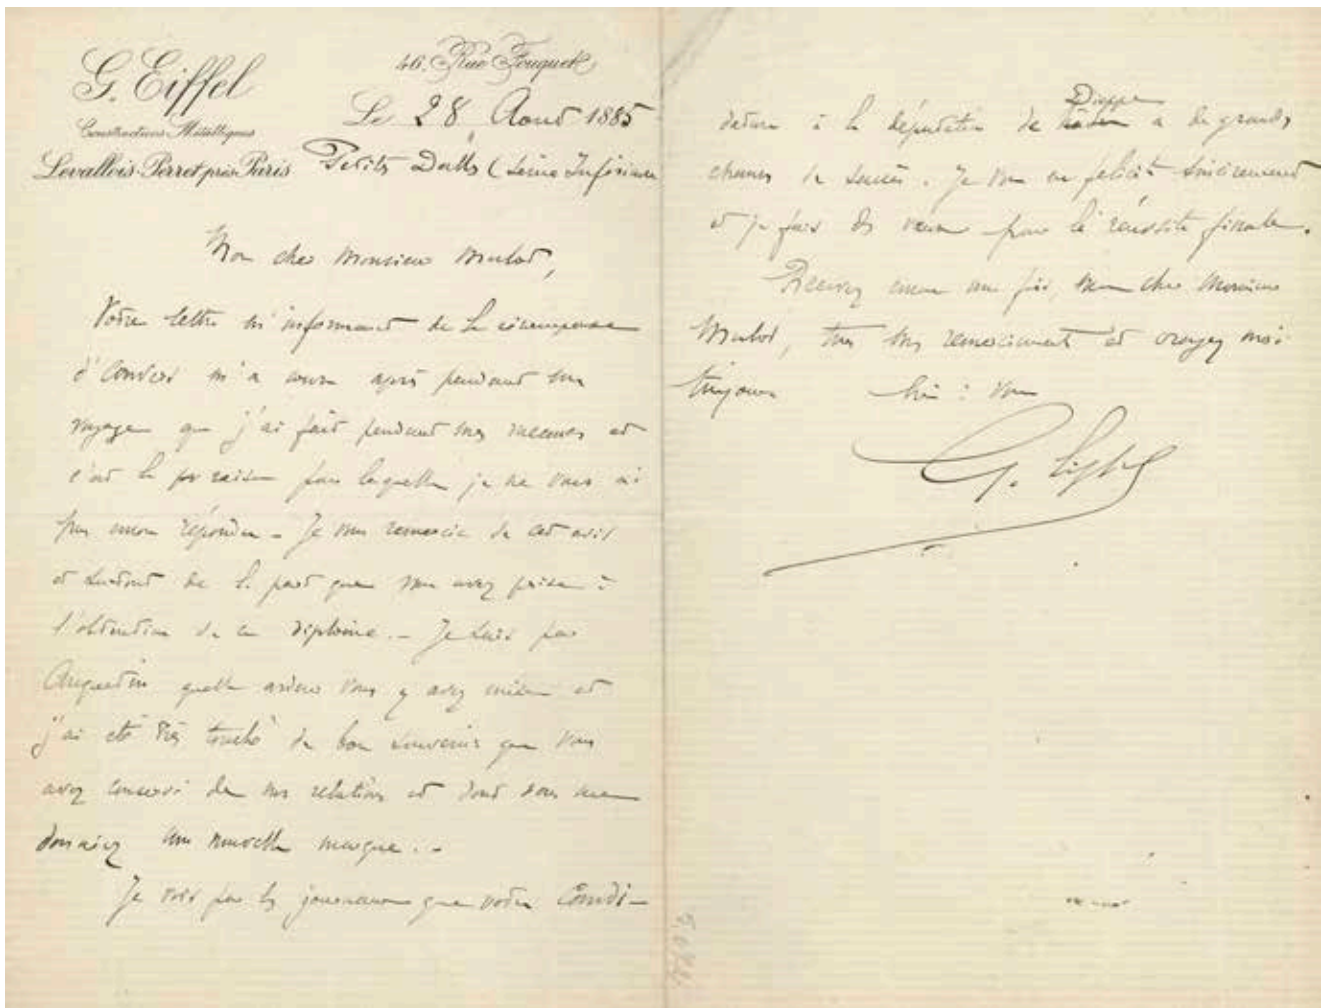 G. Eiffel
Constructions Métalliques
Levallois-Perret près Paris
46, Rue Fouquet
Le 28 Aout 1885
Petites Dalles (Seine Inférieure
Mon cher Monsieur Mulot,
Votre lettre m'informant de la récompense
d'Anvers m'a couru après pendant un
voyage que j'ai fait pendant mes vacances et
c'est la raison pour laquelle je ne vous ai
pas encore répondu - Je vous remercie de cet avis
et surtout de la part que vous avez prise à
l'obtention de ce diplome. - Je sais par
quelle ardeur vous y avez mise et
j'ai été très touché du bon souvenir que vous
avez conservé de nos relations et dont vous me
donniez une nouvelle marque. -
Je vois par les journaux que votre Candi-
dature à la députation de Dieppe a de grandes
chances de succès. Je vous en felicite sincerement
et je fais des vœux pour la réussite finale.
Recevez encore une fois, mon cher Monsieur
Mulot, tous mes remerciments et croyez moi
toujours bien à vous
G. Eiffel